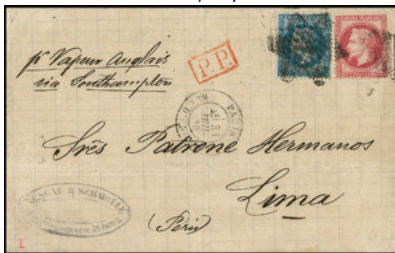 pr Vapeur Anglais
via Southampton
P.P.
PARIS
Srēs Patrone Hermanos
Lima
(Perú)
SCHMOLL